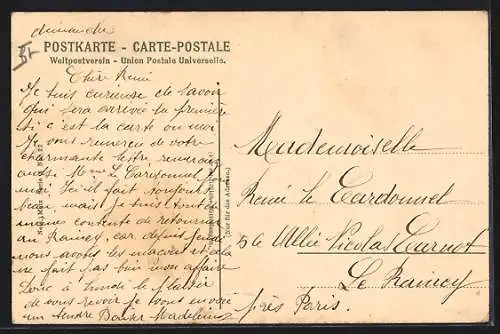 dimanche
POSTKARTE - CARTE-POSTALE
Weltpostverein - Union Postale Universelle.
Chère Renée
Je suis curieuse de savoir
qui sera arrivée la première
si c'est la carte ou moi
Je vous remercie de votre
charmante lettre, remerciez
aussi Mme Le Cardonnel pour
moi. Ici il fait toujours
beau mais je suis tout de
même contente de retourner
au Raincy, car depuis
nous avons les maçons et cela
ne fait pas bien mon affaire
Donc à lundi le plaisir
de vous revoir je vous envoie
un tendre Baiser Madeleine
(Nur für die Adresse.)
Mademoiselle
Renée le Cardonnel
56 Allée Nicolas Carnot
Le Raincy
près Paris.